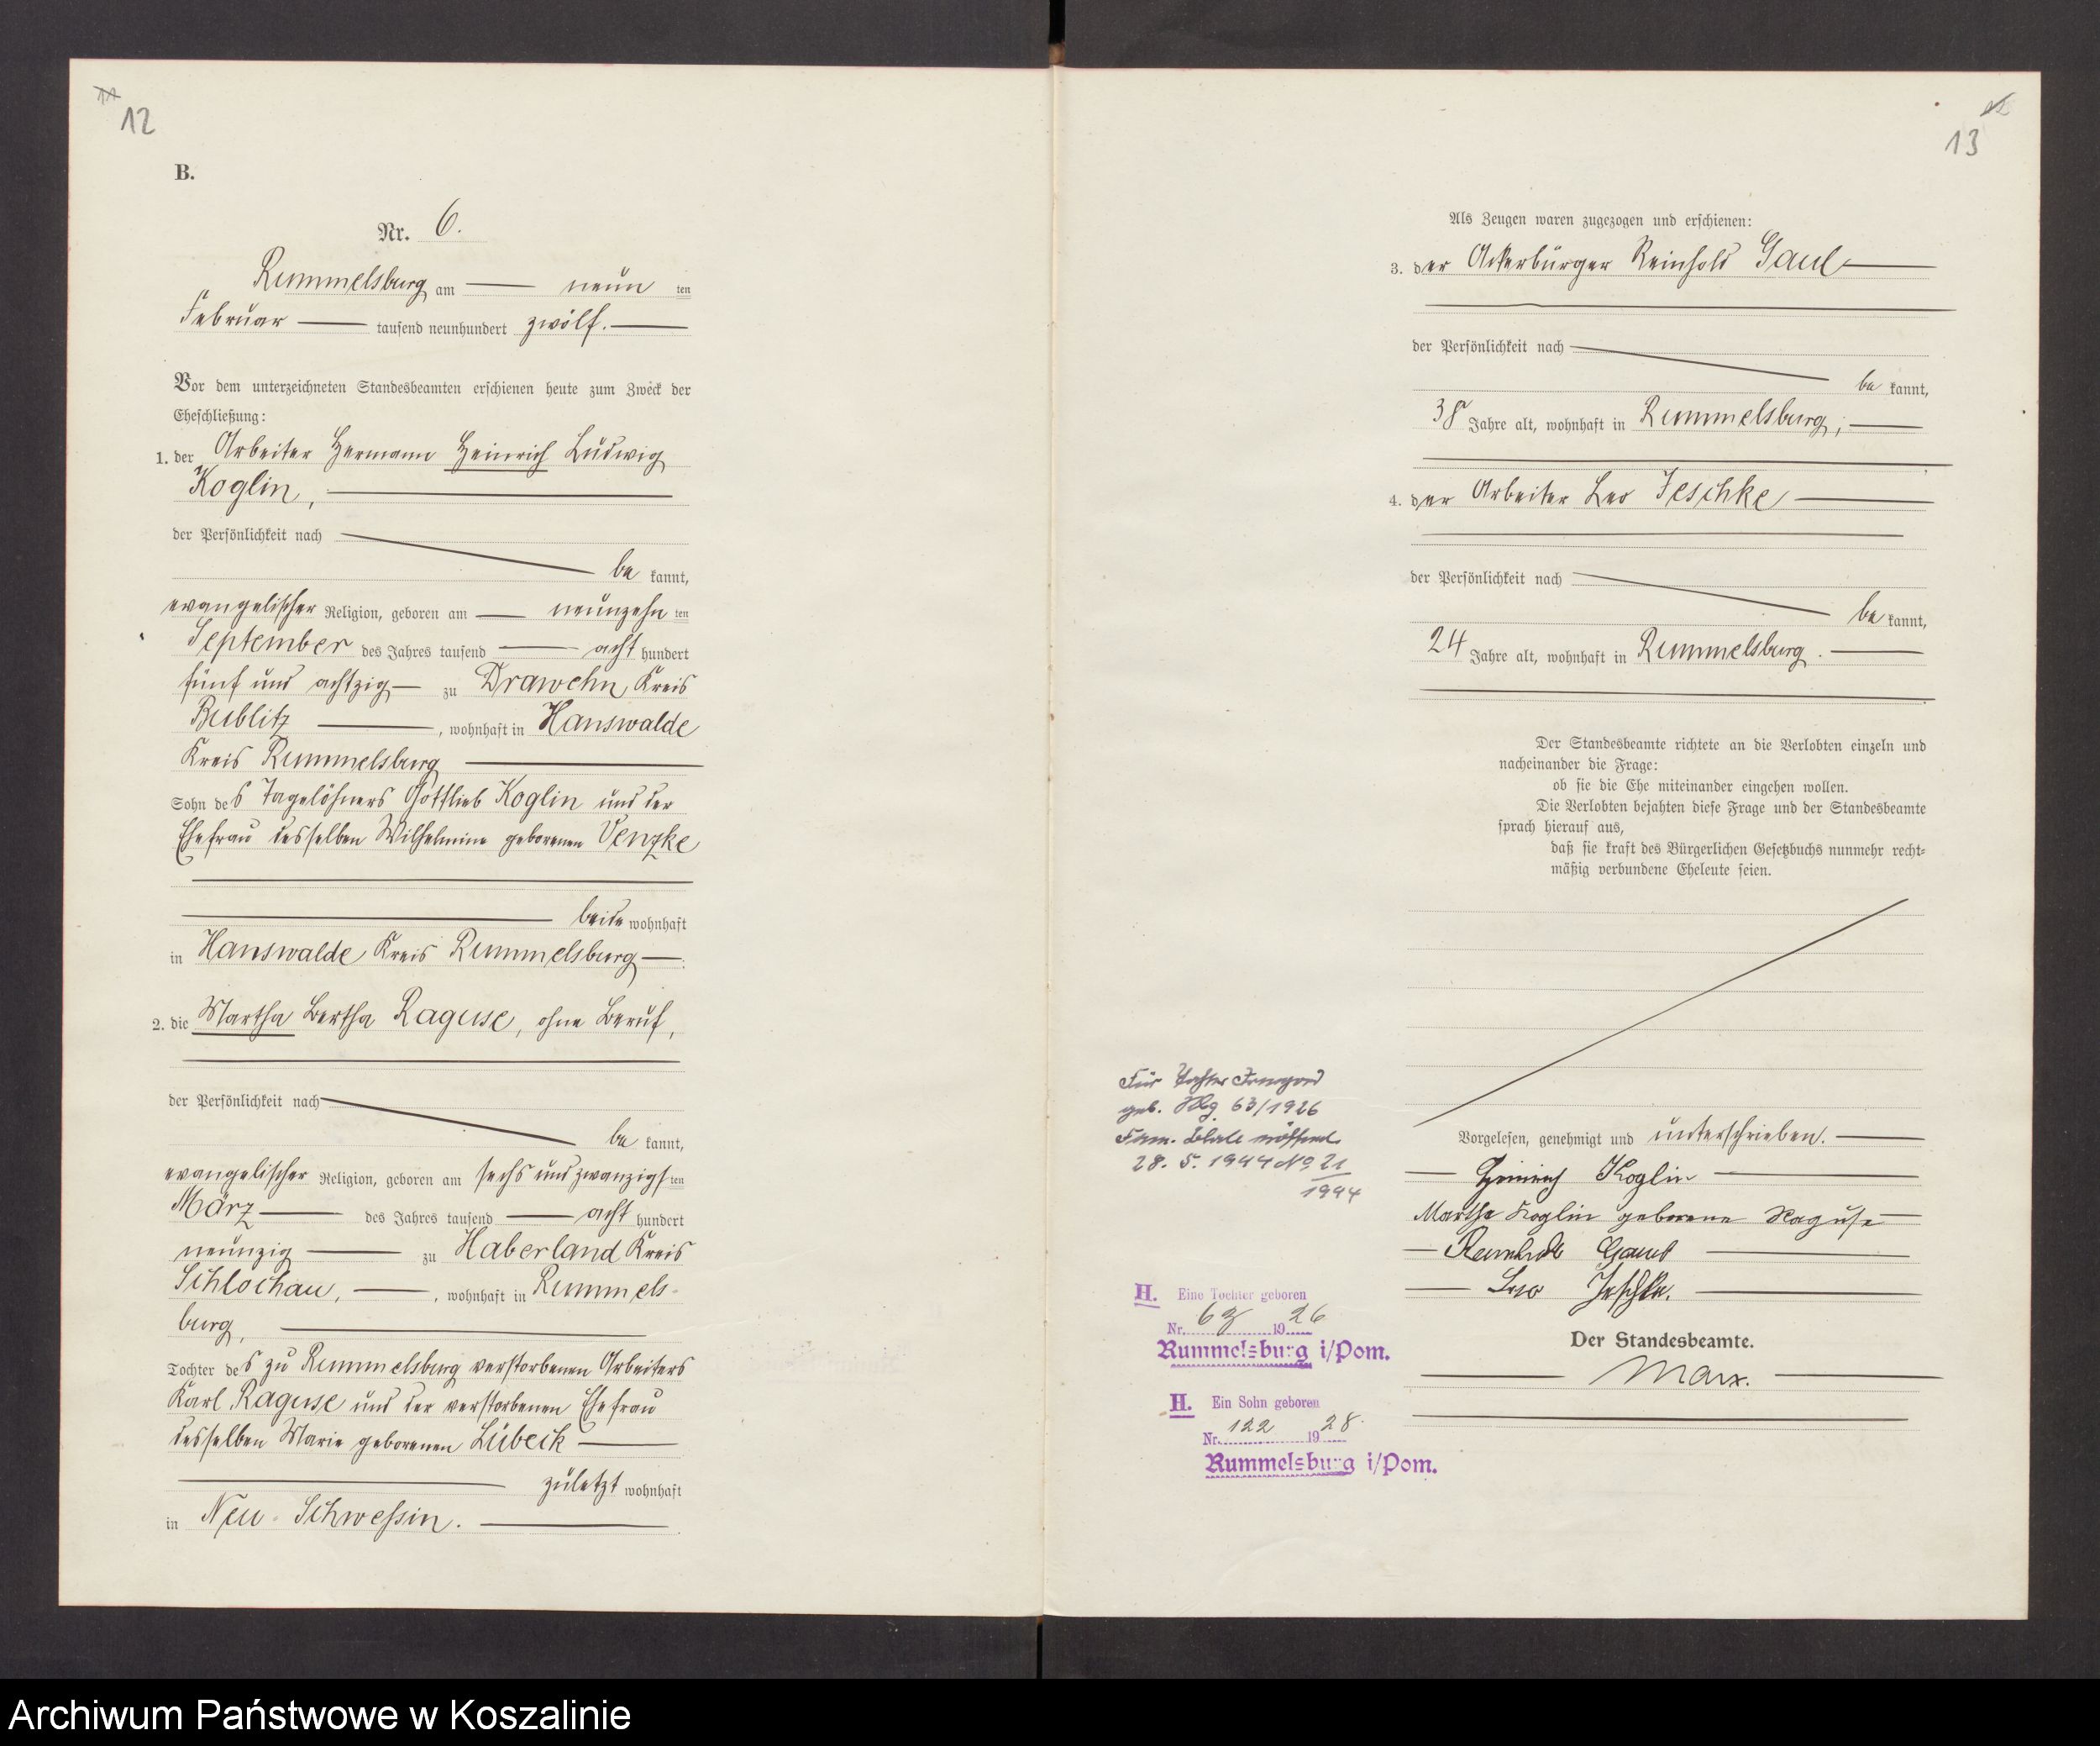 11
12
B.
Nr. 6.
Rummelsburg am neun ten
Februar tausend neunhundert zwölf.
Vor dem unterzeichneten Standesbeamten erschienen heute zum Zweck der
Eheschließung:
1. der Arbeiter Hermann Heinrich Ludwig
Koglin,
der Persönlichkeit nach
be kannt,
evangelischer Religion, geboren am neunzehn ten
September des Jahres tausend acht hundert
fünf und achtzig zu Drawehn, Kreis
Bublitz, wohnhaft in Hanswalde
Kreis Rummelsburg
Sohn des Tagelöhners Gottlieb Koglin und der
Ehefrau desselben Wilhelmine geborenen Venzke
beide wohnhaft
in Hanswalde Kreis Rummelsburg.
2. die Martha Bertha Raguse, ohne Beruf,
der Persönlichkeit nach
be kannt,
evangelischer Religion, geboren am sechs und zwanzigs ten
März des Jahres tausend acht hundert
neunzig zu Haberland Kreis
Schlochau, , wohnhaft in Rummels-
burg,
Tochter des zu Rummelsburg verstorbenen Arbeiters
Karl Raguse und der verstorbenen Ehefrau
desselben Marie geborenen Lübeck
zuletzt wohnhaft
in Neu-Schwessin.
12
13
Als Zeugen waren zugezogen und erschienen:
3. der Ackerbürger Reinhold Gaul
der Persönlichkeit nach
be kannt,
38 Jahre alt, wohnhaft in Rummelsburg;
4. der Arbeiter Leo Jeschke
der Persönlichkeit nach
be kannt,
24 Jahre alt, wohnhaft in Rummelsburg.
Der Standesbeamte richtete an die Verlobten einzeln und
nacheinander die Frage:
ob sie die Ehe miteinander eingehen wollen.
Die Verlobten bejahten diese Frage und der Standesbeamte
sprach hierauf aus,
daß sie kraft des Bürgerlichen Gesetzbuchs nunmehr recht-
mäßig verbundene Eheleute seien.
Vorgelesen, genehmigt und unterschrieben.
Heinrich Koglin
Martha Koglin geborene Raguse
Reinhold Gaul
Leo Jeschke.
Der Standesbeamte.
Marx.
Für Tochter Irmgard
geb. Rbg 63/1926
Fam. Blatt eröffnet
28. 5. 1944 No 21
1944
H. Eine Tochter geboren
Nr. 63 1926
Rummelsburg i/Pom.
H. Ein Sohn geboren
Nr. 122 1928
Rummelsburg i/Pom.
Archiwum Państwowe w Koszalinie